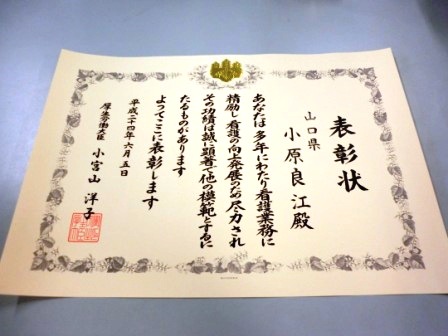 表彰状
山口県
小原良江殿
あなたは多年にわたり看護業務に
精励し看護の向上発展のため尽力され
その功績は誠に顕著で他の模範とするに
たるものがあります
よってここに表彰します
平成二十四年六月五日
厚生労働大臣 小宮山洋子